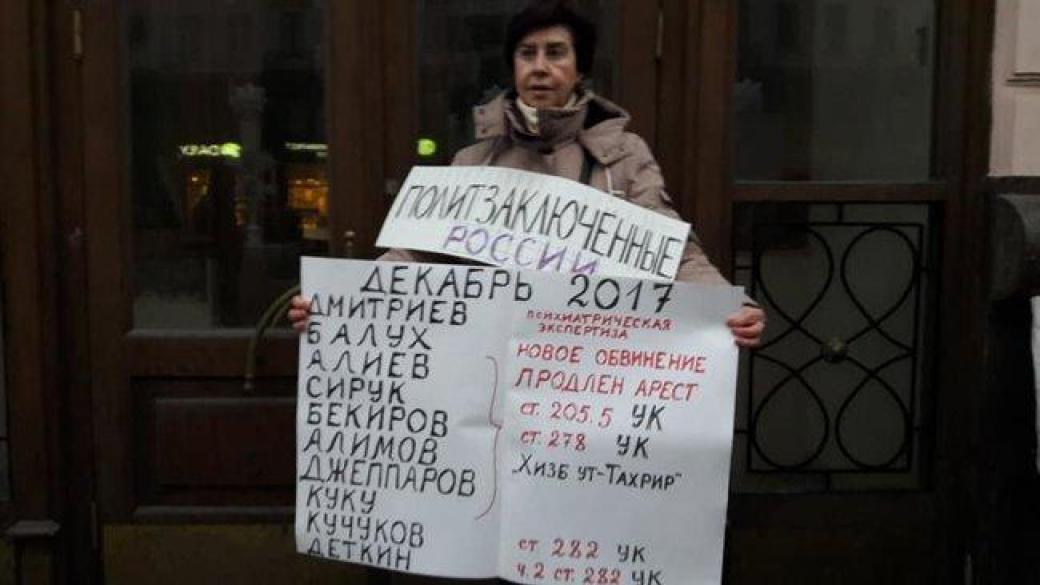 ПОЛИТЗАКЛЮЧЕННЫЕ
РОССИИ
ДЕКАБРЬ 2017
ДМИТРИЕВ
БАЛУХ
АЛИЕВ
СИРУК
БЕКИРОВ
АЛИМОВ
ДЖЕППАРОВ
КУКУ
КУЧУКОВ
ДЕТКИН
ПСИХИАТРИЧЕСКАЯ
ЭКСПЕРТИЗА
НОВОЕ ОБВИНЕНИЕ
ПРОДЛЕН АРЕСТ
ст. 205.5 УК
ст. 278 УК
„ХИЗБ УТ-ТАХРИР"
ст 282 УК
ч. 2 ст. 282 УК